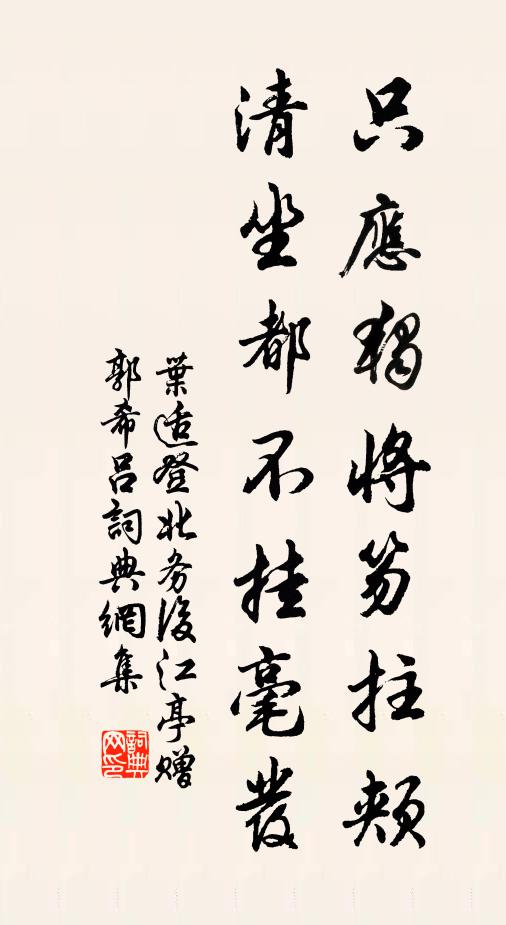 只應獨將笏拄頰
清坐都不挂毫發
葉适登北务後江亭赠
郭希呂詞典網集
詞典
网印